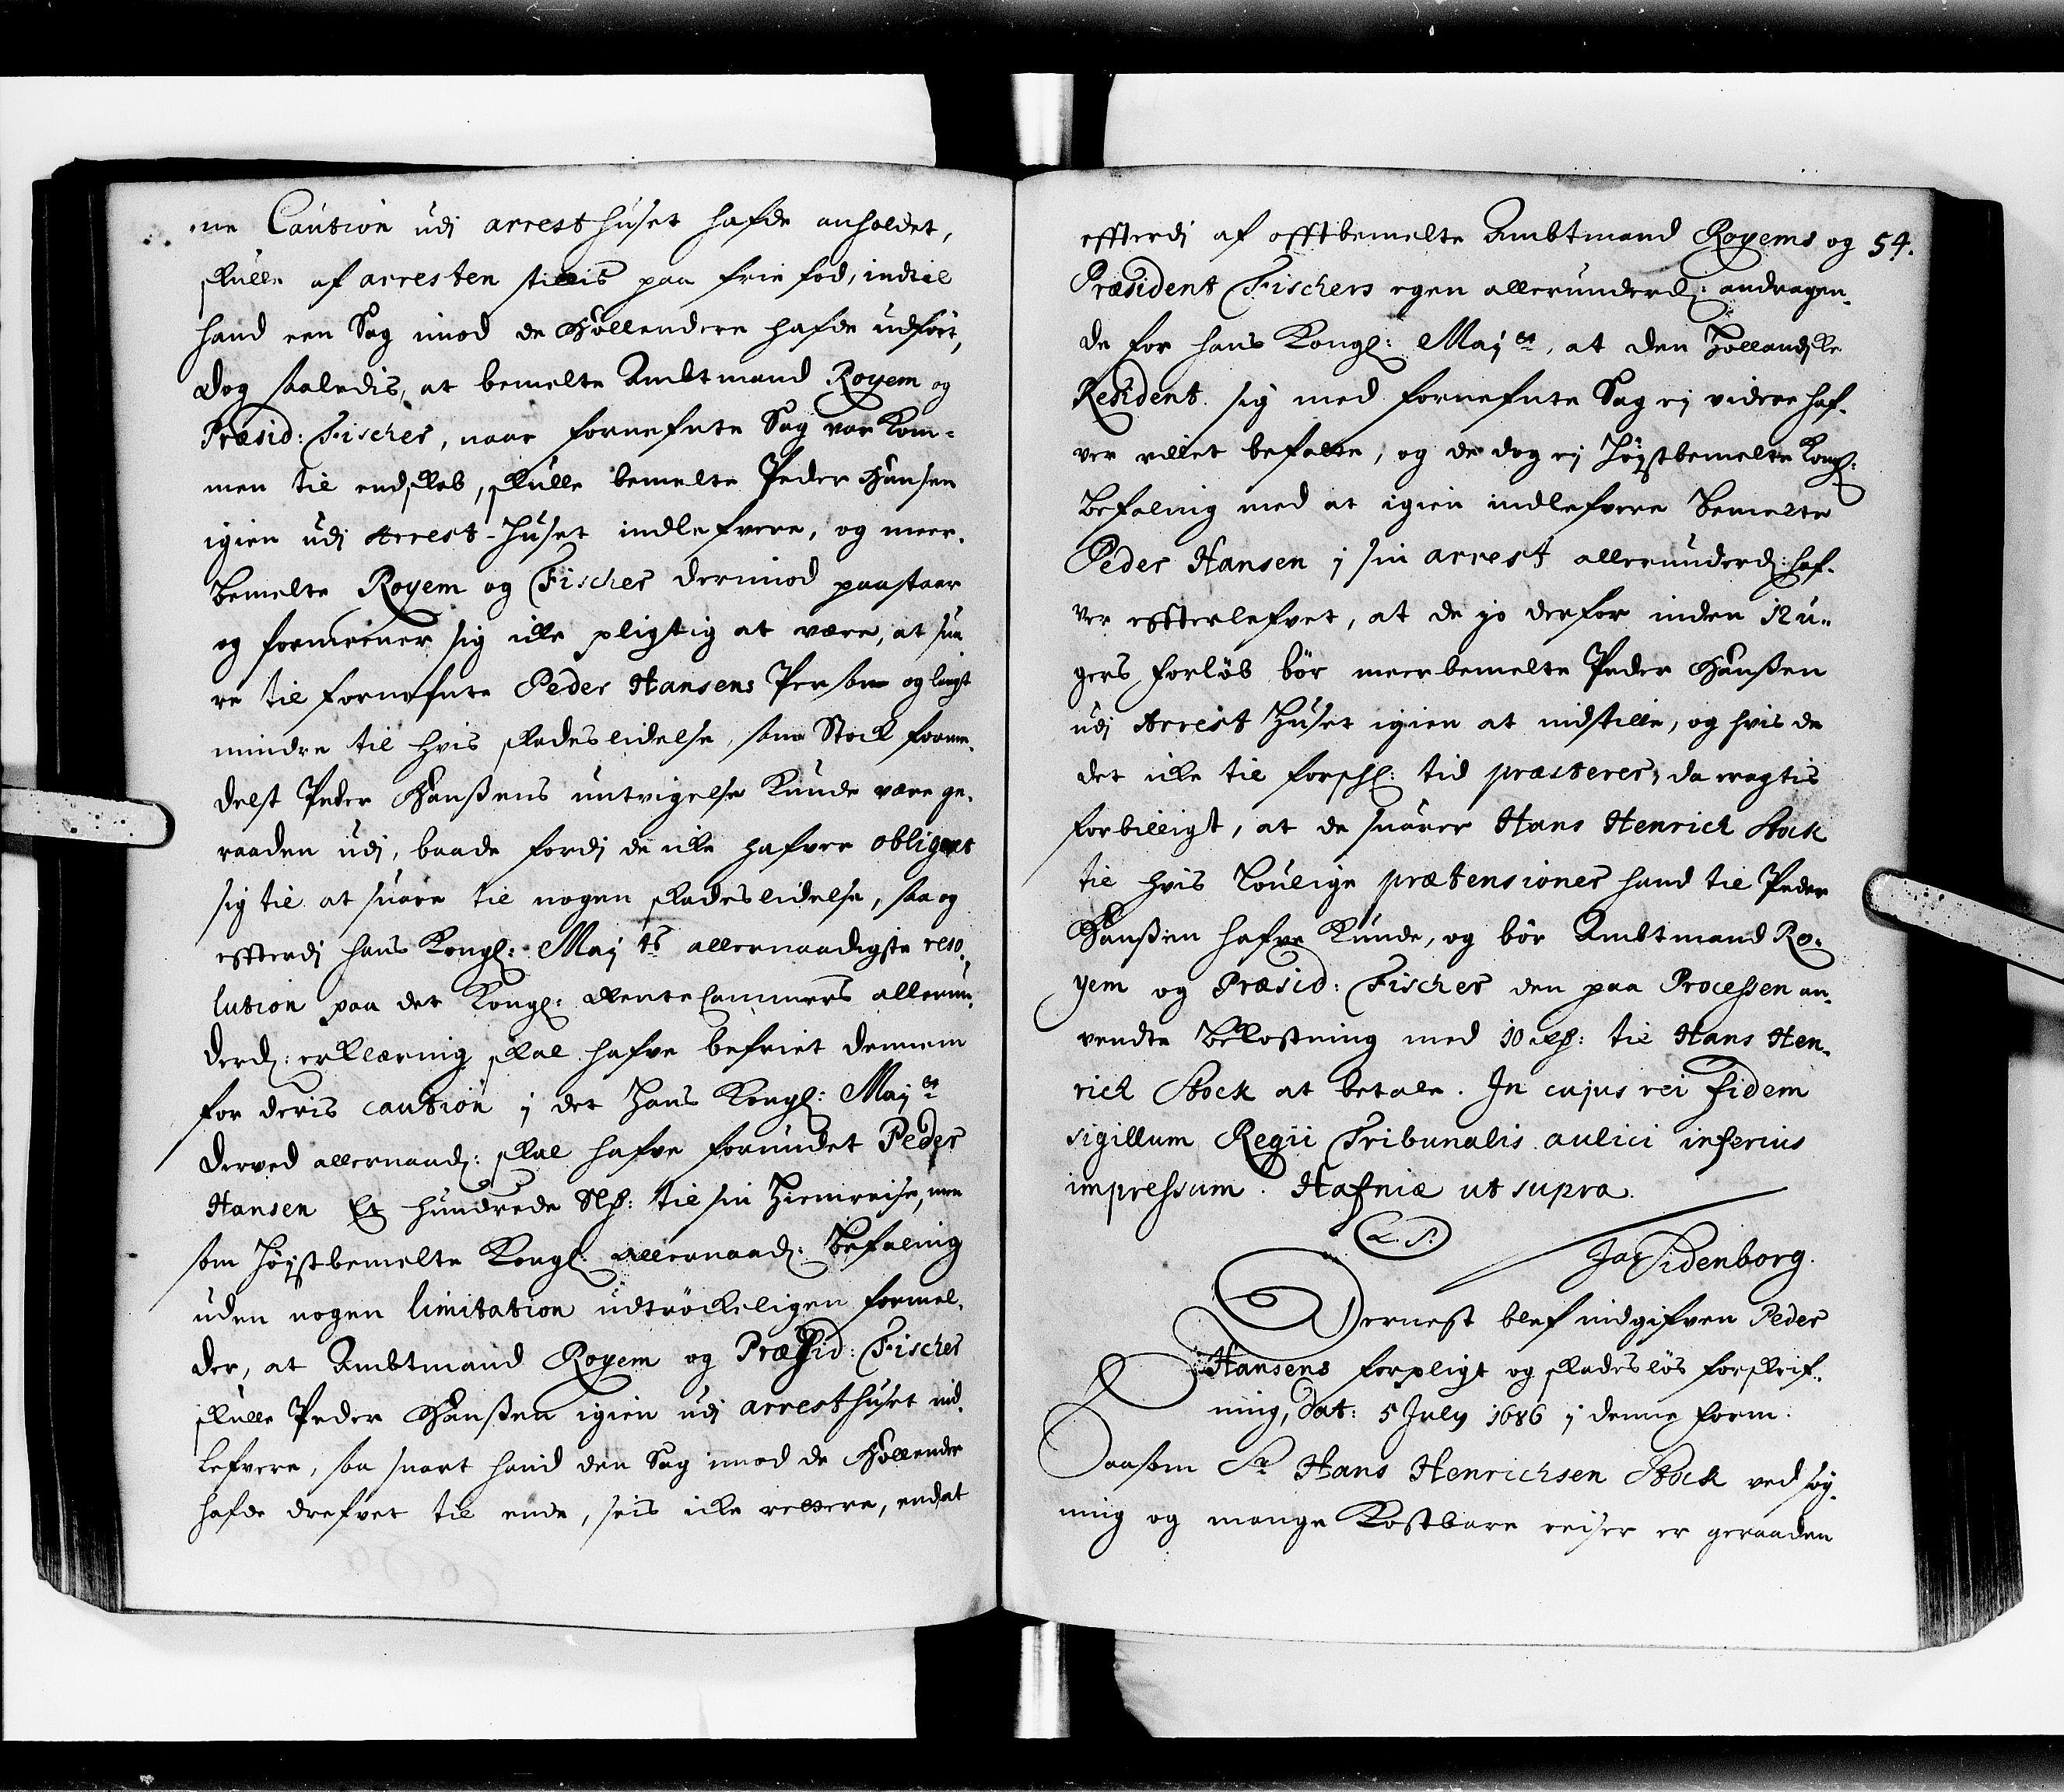 ne Caution udj arresthuset hafde anholdet,
skulle af arresten stillis paa frie fod, indtil
hand een Sag imod de Hollendere hafde udført,
dog saaledis, at bemelte Ambtmand Royem og
Præsid: Fischer, naar fornefnte Sag var kom-
men til endskab, skulle bemelte Peder Hansen
igien udj Arrest-Huset indlefvere, og meer-
bemelte Royem og Fischer derimod paastaar
og formeener sig icke pligtig at være, at sua-
re til fornefnte Peder Hansens Person og langt
mindre til hvis skadeslidelse, som Stock forme-
delst Peder Hanßens untvigelse kunde være ge-
raaden udj, baade fordj de icke hafver obligeret
sig til at suare til nogen skadeslidelse, saa og
effterdj hans Kongl: Maj ts allernaadigste reso-
lution paa det Kongl: Rente Cammers allerun-
derd: erklæring skal hafve befriet dennem
for deris caution j det Hans Kongl: Maj tt
derved allernaad: skal hafve forundet Peder
Hansen Et hundrede Slb: til sin Hiemreise, men
som Høystbemelte Kongl: allernaad: Befaling
uden nogen limitation udtrøckeligen formel-
der, at Ambtmand Royem og Præsid: Fischer
skulle Peder Hanßen igien udj arresthuset ind-
lefvere, saa snart hand den Sag imod de Hollender
hafde drefvet til ende, seis icke rettere, end at
effterdj af offtbemelte Ambtmand Royems og 54.
Præsident Fischers egen allerunderd: andragen-
de for hans Kongl: Maj tt, at den Hollandske
Resident sig med fornefnte Sag ej videre haf-
ver villet befatte, og de dog ej Høystbemelte Kongl:
Befaling med at igien indlefvere bemelte
Peder Hansen j sin arrest allerunderd: haf-
ver effterlefvet, at de jo derfor inden 12 u-
gers forløb bør meerbemelte Peder Hanßen
udj Arrest Huset igien at indstille, og hvis de
det icke til forschl: tid præsterer, da eragtis
forbilligt, at de suarer Hans Henrich Stock
til hvis Loulige prætensioner hand til Peder
Hanßen hafve kunde, og bør Ambtmand Ro-
yem og Præsid: Fischer den paa Processen an-
vendte Bekostning med 10 rd: til Hans Hen-
rich Stock at betale. In cujus rei fidem
sigillum Regii Tribunalis aulici inferius
impressum. Hafniæ ut supra.
L. S.
Jac Sidenborg.
Dernest blef indgifven Peder
Hansens forpligt og skadesløs forskrif-
ning, dat: 5 July 1686 j denne form.
Saasom Sr Hans Henrichsen Stock ved søg-
ning og mange kostbare reiser er geraaden